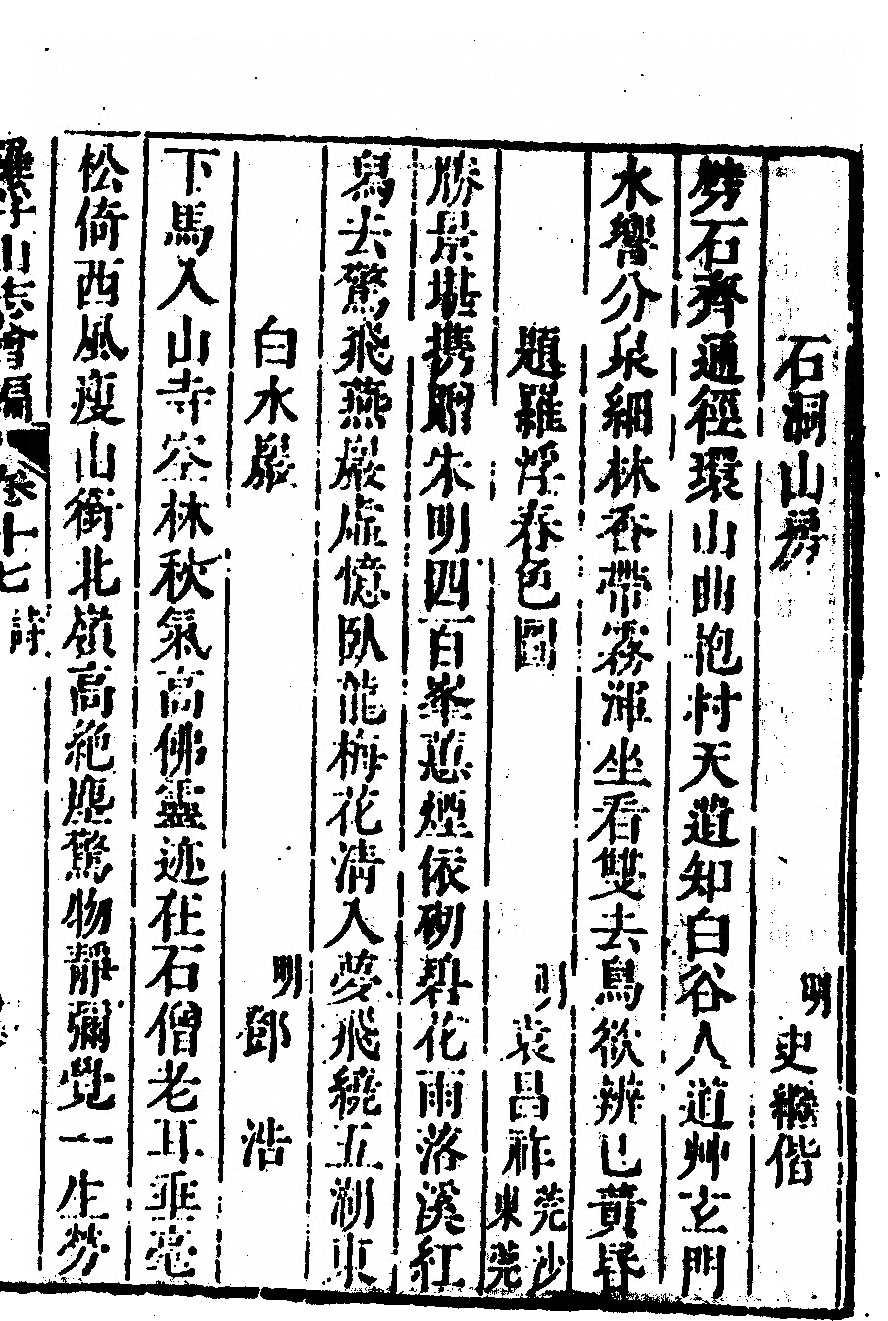 石洞山房
明史繼偕
劈石齊通徑環山曲抱村天遺知白谷人道艸玄門
水響分泉細林香帶霧渾坐看雙去鳥欲辨已黃昏
題羅浮春色圖
明袁昌祚東莞莞沙
勝景堪携贈朱明四百峯蔥煙依砌碧花雨落溪紅
舄去驚飛燕巖虛憶臥龍梅花清入夢飛繞五湖東
白水巖
明鄧浩
下馬入山寺空林秋氣高佛靈迹在石僧老耳垂毫
松倚西風瘦山銜北嶺高絶塵驚物靜彌覺一生勞
羅浮山志會編
卷十七詩